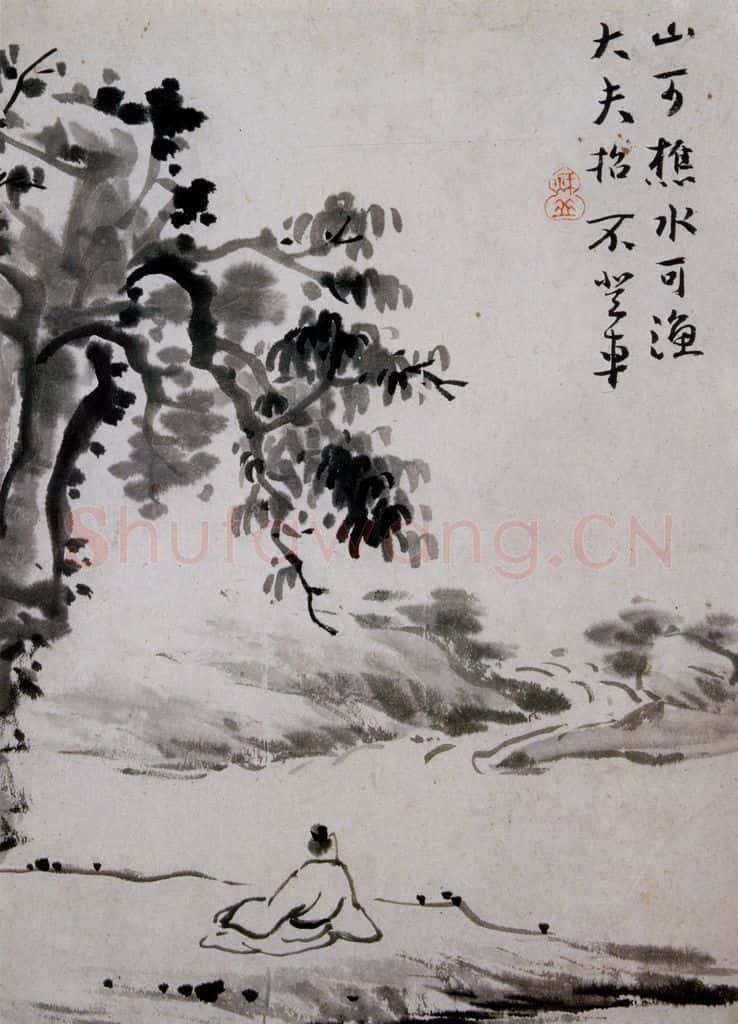 山可樵水可渔
大夫招不登車
Shufawang.CN